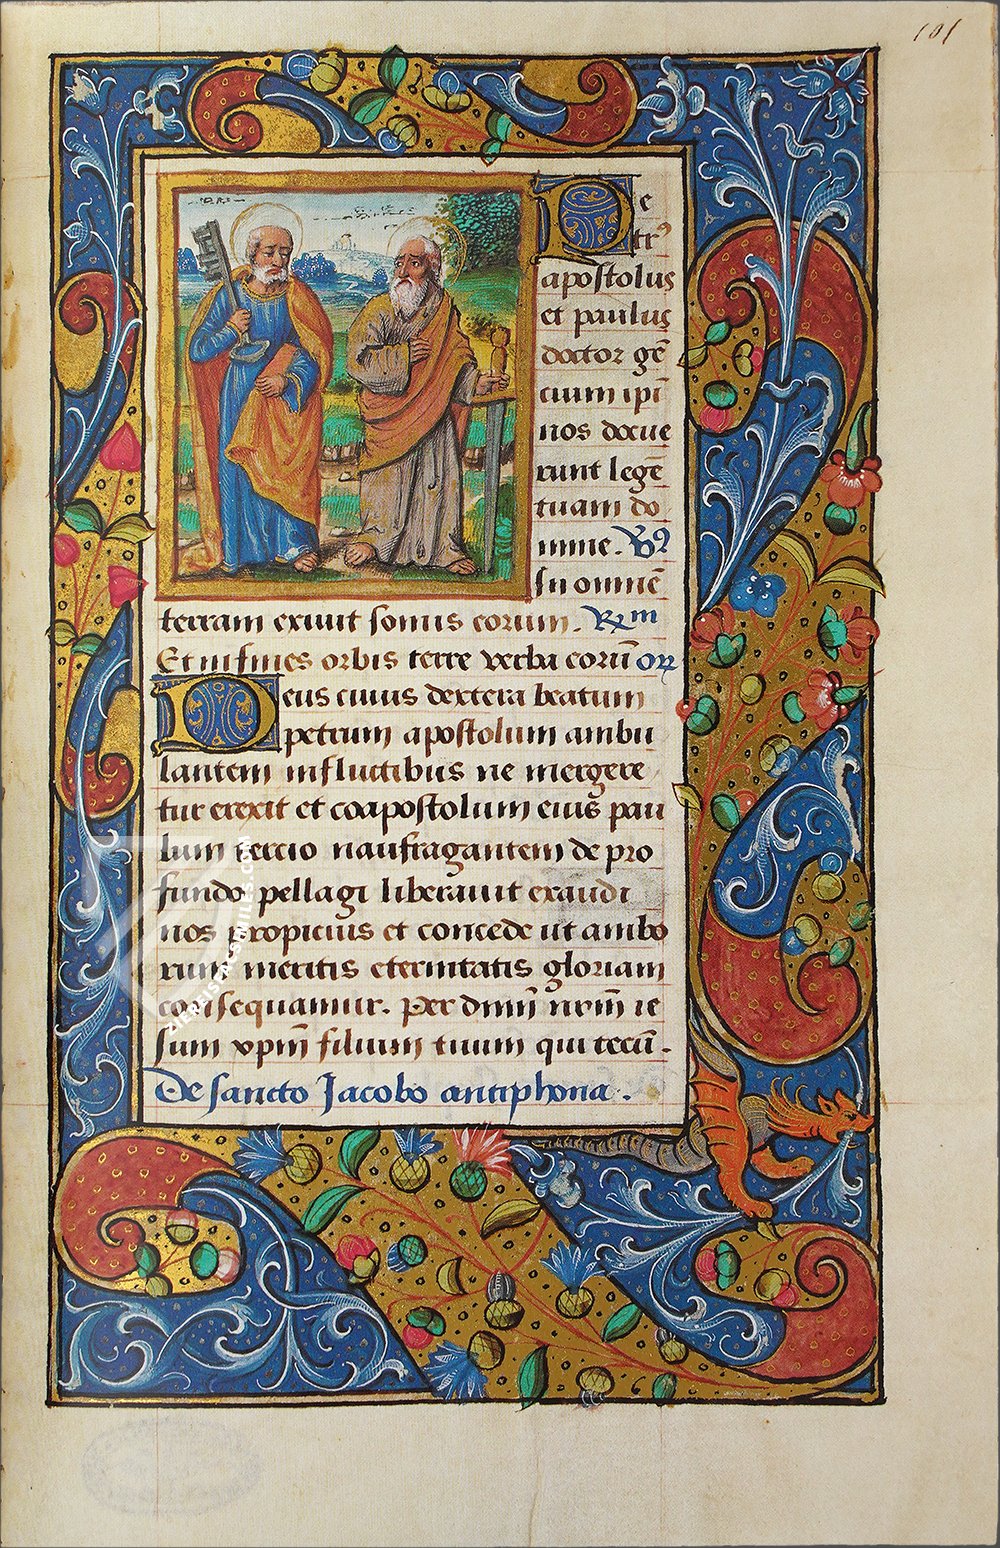 101
Pe
trꝰ
apostolus
et paulus
doctor gē
cium ipī
nos docue
runt legē
tuam do
mine. V̉
In omnē
terram exiuit sonus eorum. Rm
Et in fines orbis terre verba eorū or̄
Deus cuius dextera beatum
petrum apostolum ambu
lantem in fluctibus ne mergere
tur erexit et coapostolum eius pau
lum tercio naufragantem de pro
fundo pellagi liberauit exaudi
nos propicius et concede ut ambo
rum meritis eternitatis gloriam
consequamur. Per dnm̄ nrm̄ ie
sum xpm̄ filium tuum qui tecū.
De sancto Jacobo antiphona.
ZIEREISFACSIMILES.COM